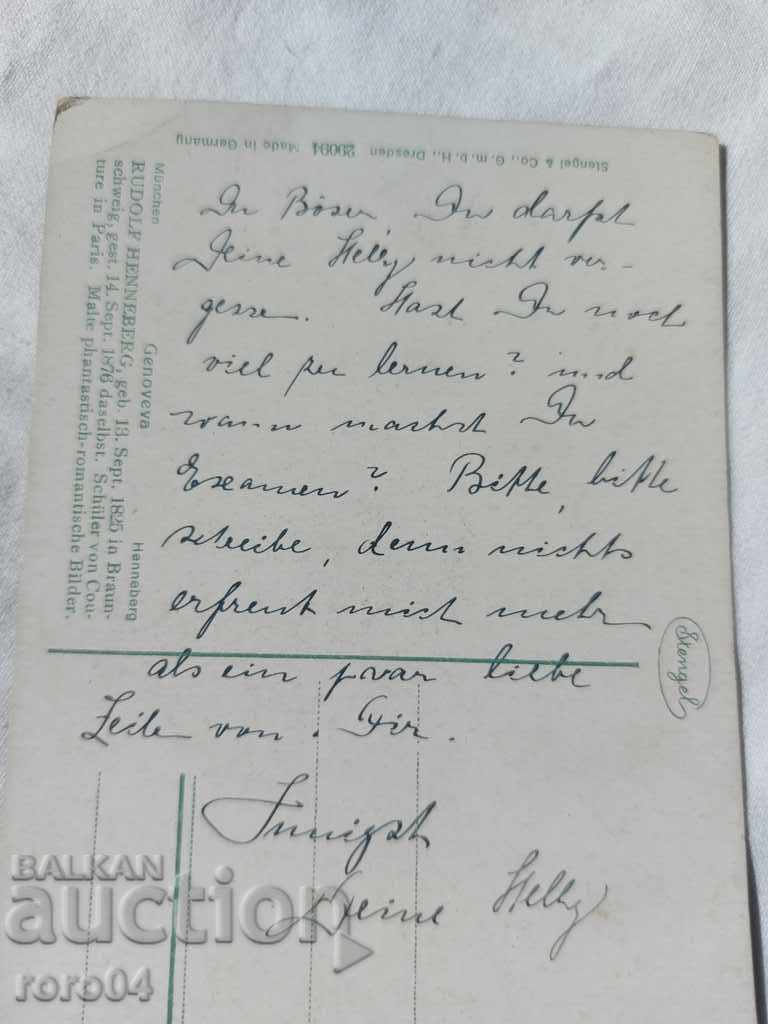 Stengel & Co., G. m. b. H., Dresden 29004 Made in Germany
München
Genoveva
Henneberg
RUDOLF HENNEBERG, geb. 13. Sept. 1825 in Braun-
schweig, gest. 14. Sept. 1876 daselbst. Schüler von Cou-
ture in Paris. Malte phantastisch-romantische Bilder.
Du Böser, Du darfst
Deine Helly nicht ver-
gessen. Hast Du noch
viel zu lernen? und
wann machst Du
Examen? Bitte, bitte
schreibe, denn nichts
erfreut mich mehr
als ein paar liebe
Zeilen von Dir.
Innigst
Deine Helly
Stengel
BALKAN
auction
roro04